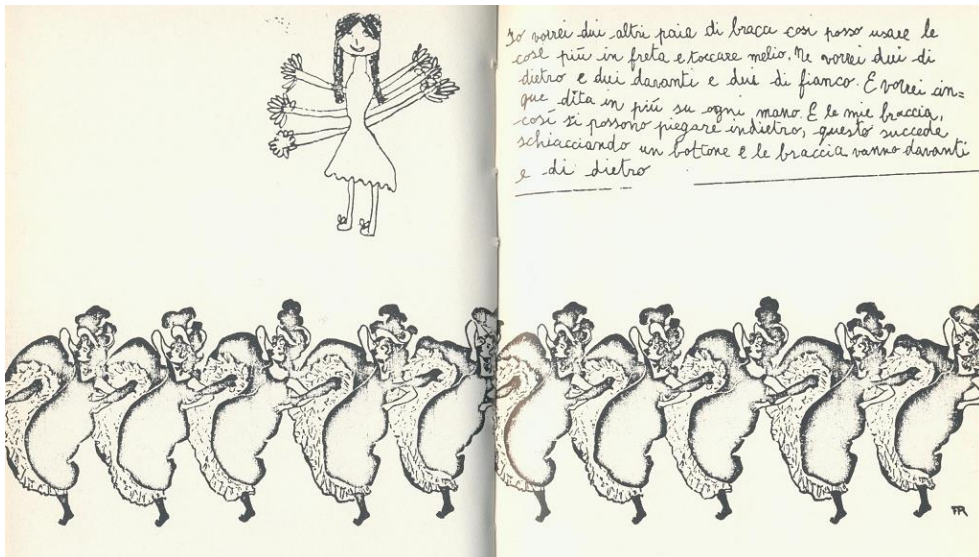 Io vorrei dui altri paia di braca cosi posso usare le
cose più in freta e toccare melio. Ne vorrei dui di
dietro e dui davanti e dui di fianco. E vorrei cin=
que dita in più su ogni mano. E le mie braccia,
cosi si possono piegare indietro, questo succede
schiacciando un bottone e le braccia vanno davanti
e di dietro